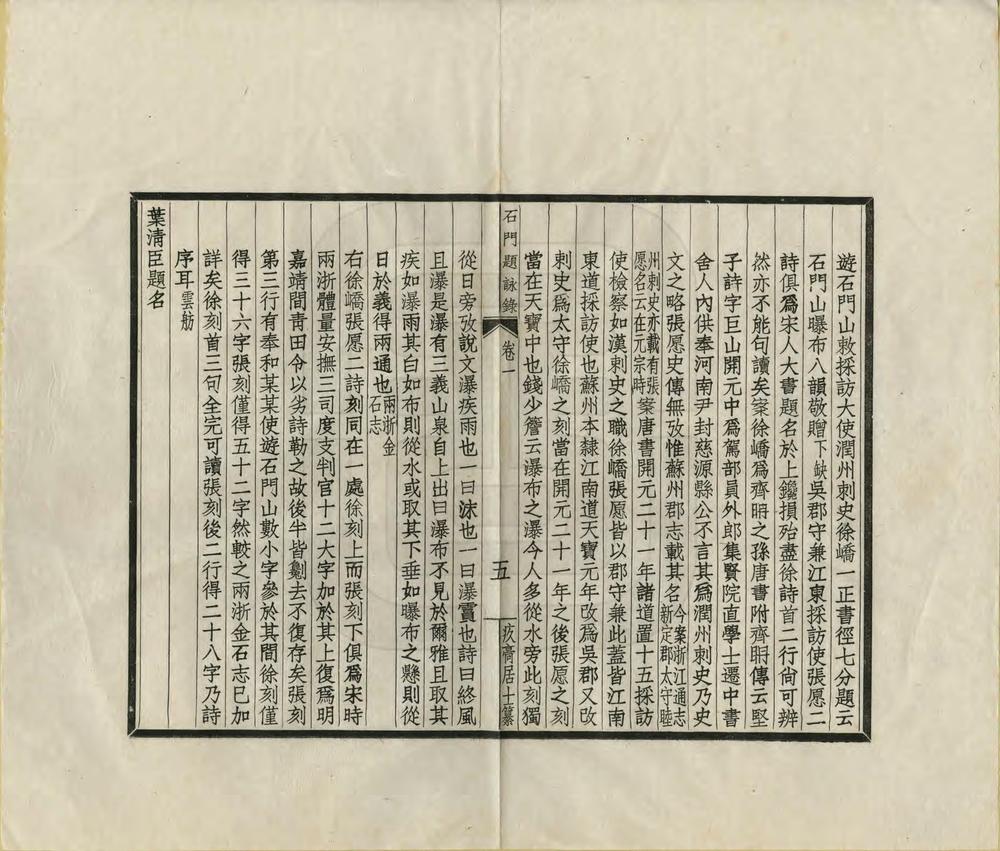 遊石門山敕採訪大使潤州刺史徐嶠一正書徑七分題云
石門山曝布八韻敬贈下缺吳郡守兼江東採訪使張愿二
詩俱爲宋人大書題名於上鑱損殆盡徐詩首二行尙可辨
然亦不能句讀矣案徐嶠爲齊聃之孫唐書附齊聃傳云堅
子嶠字巨山開元中爲駕部員外郎集賢院直學士遷中書
舍人內供奉河南尹封慈源縣公不言其爲潤州刺史乃史
文之略張愿史傳無攷惟蘇州郡志載其名今案浙江通志新定郡太守睦
州刺史亦載有張愿名云在元宗時案唐書開元二十一年諸道置十五採訪
使檢察如漢刺史之職徐嶠張愿皆以郡守兼此蓋皆江南
東道採訪使也蘇州本隸江南道天寶元年改爲吳郡又改
刺史爲太守徐嶠之刻當在開元二十一年之後張愿之刻
當在天寶中也錢少詹云瀑布之瀑今人多從水旁此刻獨
石門題詠錄
卷一
五
疚齋居士纂
從日旁攷說文瀑疾雨也一曰沫也一曰瀑霣也詩曰終風
且瀑是瀑有三義山泉自上出曰瀑布不見於爾雅且取其
疾如瀑雨其白如布則從水或取其下垂如曝布之懸則從
日於義得兩通也兩浙金石志
右徐嶠張愿二詩刻同在一處徐刻上而張刻下俱爲宋時
兩浙體量安撫三司度支判官十二大字加於其上復爲明
嘉靖間靑田令以劣詩勒之故後半皆劖去不復存矣張刻
第三行有奉和某某使遊石門山數小字參於其間徐刻僅
得三十六字張刻僅得五十二字然較之兩浙金石志已加
詳矣徐刻首三句全完可讀張刻後二行得二十八字乃詩
序耳雲舫
葉淸臣題名